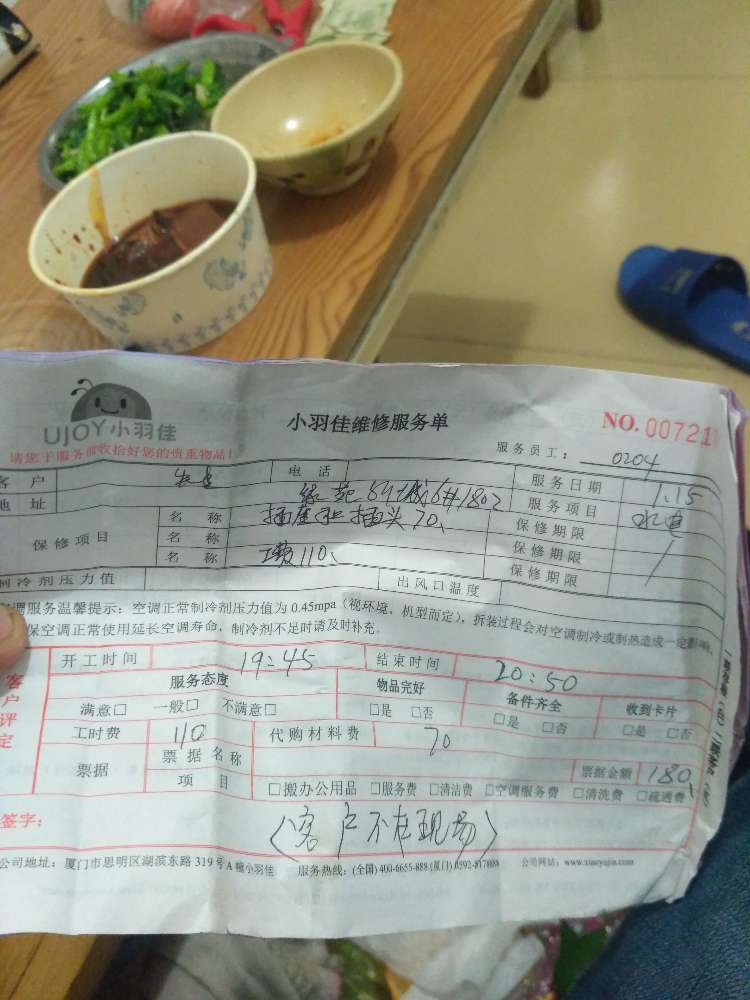 UJOY小羽佳
小羽佳维修服务单
NO. 007211
请您于服务前收拾好您的贵重物品!
服务员工: 0204
客户 电话 服务日期 1.15
地址 6#1802 服务项目 水电
保修项目 名称 插座和插头70、 保修期限
名称 工费110、 保修期限
名称 保修期限
制冷剂压力值 出风口温度
空调服务温馨提示:空调正常制冷剂压力值为0.45mpa(视环境、机型而定),拆装过程会对空调制冷或制热造成一定影响,
保空调正常使用延长空调寿命,制冷剂不足时请及时补充。
客户评定
开工时间 19:45 结束时间 20:50
服务态度 物品完好 备件齐全 收到卡片
满意□ 一般□ 不满意□ □是 □否 □是 □否 □是 □否
工时费 110 代购材料费 70
票据 票据名称 票据金额 180、
项目 □搬办公用品 □服务费 □清洁费 □空调服务费 □清洗费 □疏通费
签字: (客户不在现场)
公司地址:厦门市思明区湖滨东路319号A幢小羽佳 服务热线:(全国)400-6655-888(厦门)0592-8178888 公司网站:www.xiaoyujia.com